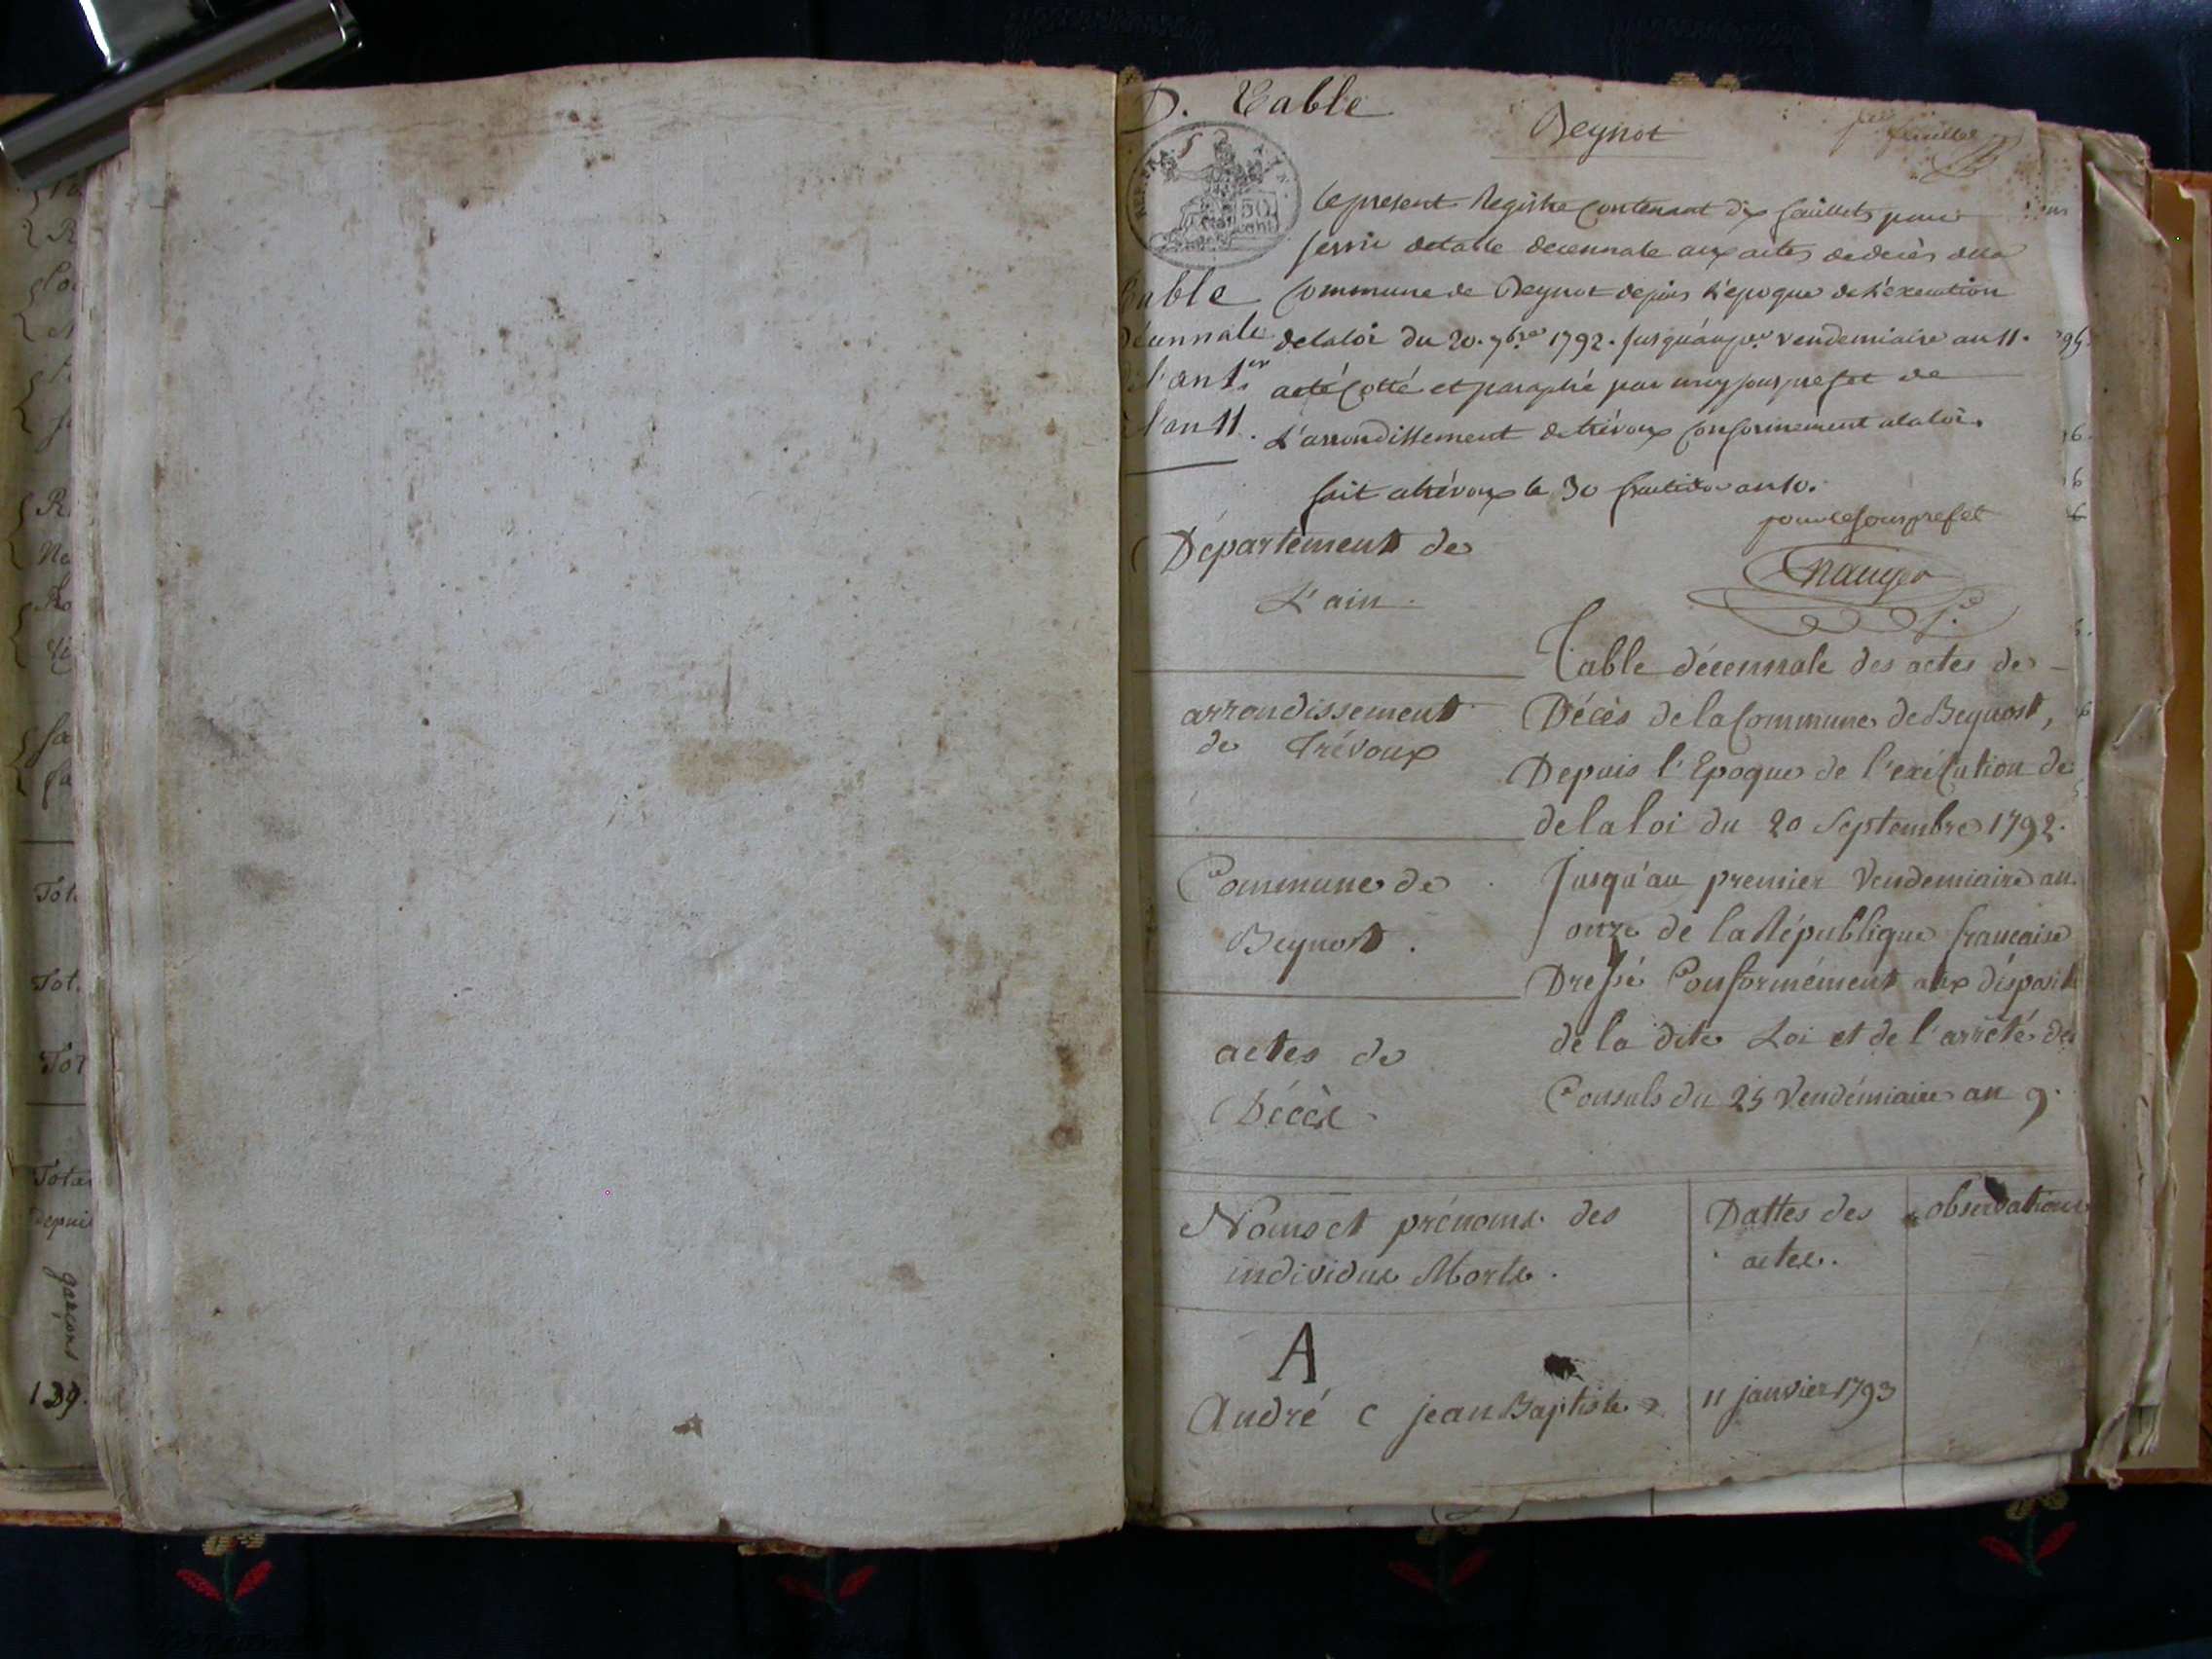 D. Table
Beynot
feuillet
Le present Registre Contenant dix feuillets pour
servir detable decennale aux actes dedecès dela
Commune de Beynot depuis L'epoque de L'execution
delaloi du 20. 7bre 1792. Jusqu'au per vendemiaire an 11.
Table
Décennale
de l'an 1er
à l'an 11.
a été Cotté et paraphé par nous sousprefet de
L'arrondissement detrévoux Conformement alaloi.
fait atrévoux le 30 fructidor an 10.
pour le sousprefet
Département de
L'ain.
arrondissement
de Trévoux
Commune de
Beynost.
actes de
Décès.
Table décennale des actes de
Décès de la Commune de Beynost,
Depuis l'Epoque de l'exécution de
de la loi du 20 Septembre 1792.
Jusqu'au premier Vendemiaire an
onze de la République francaise
Dressé Conformément aux disposit
de la dite Loi et de l'arrêté des
Consuls du 25 Vendémiaire an 9.
Noms et prénoms des
individus Morts.
Dattes des
actes.
observations
A
André c jean Baptiste
11 janvier 1793
Tot.
Tot.
Tot
Total
depuis
garçons
139.